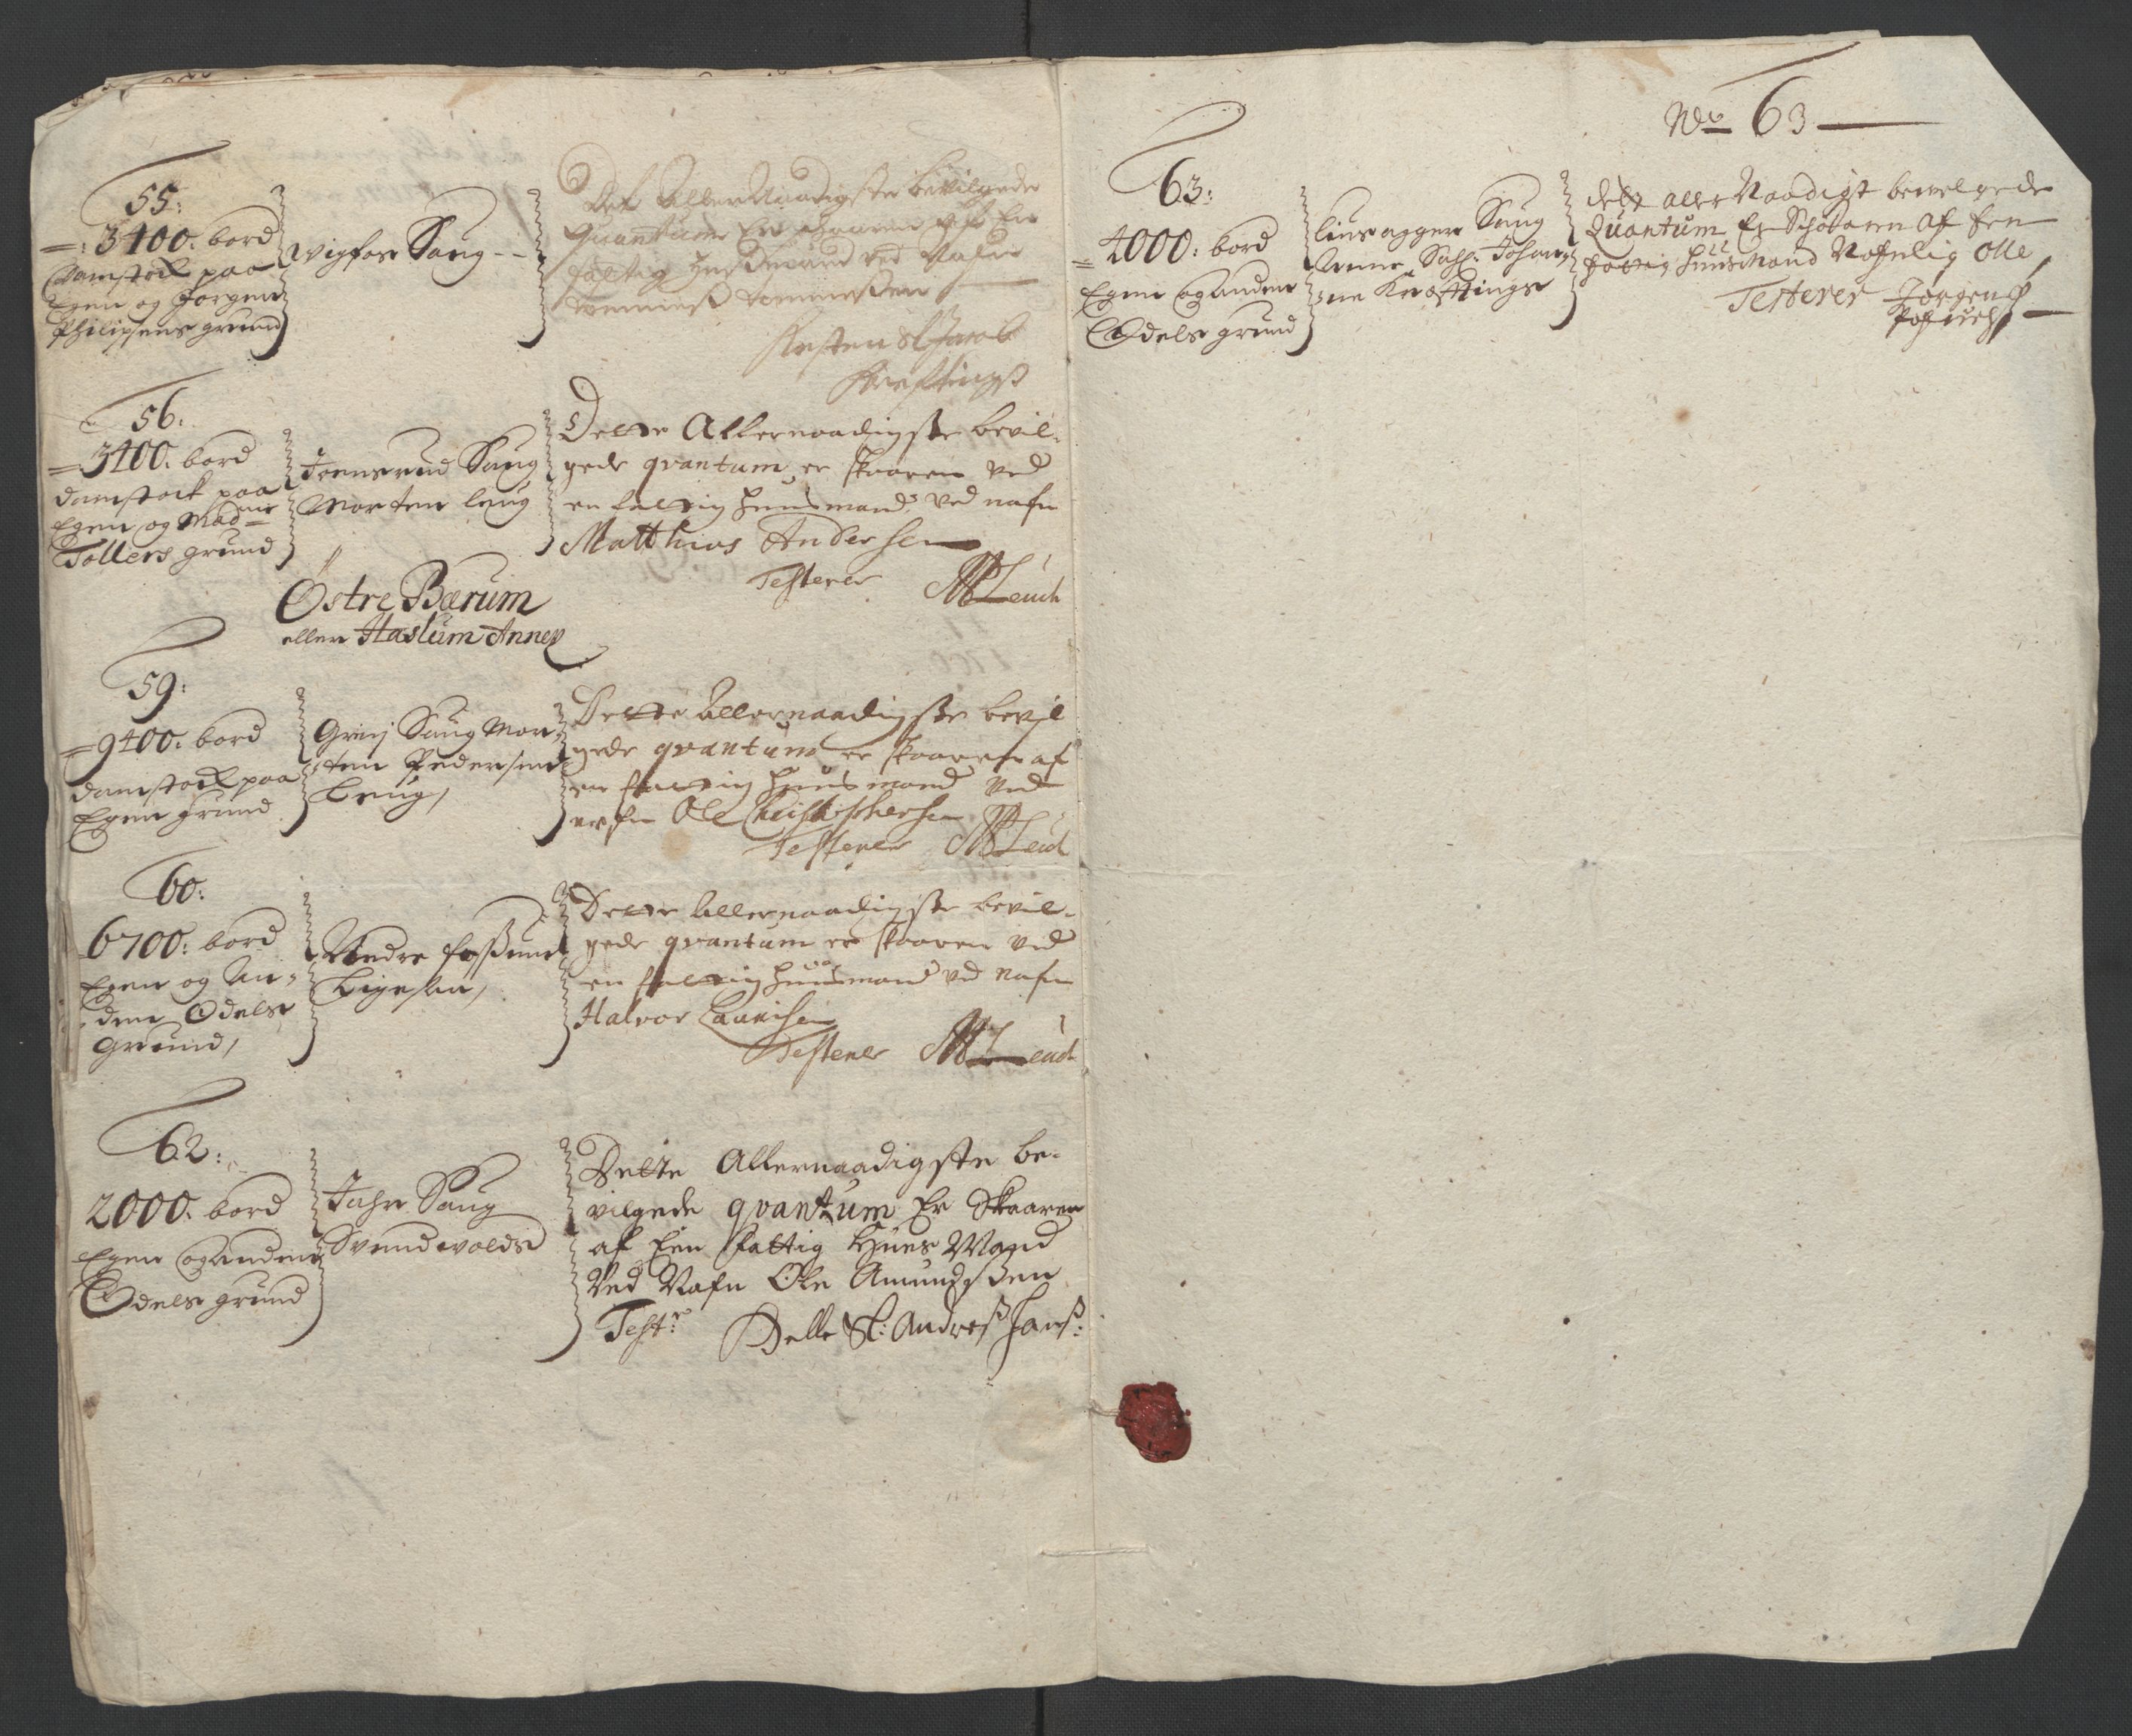 55:
3400. bord
damstock paa
Egen og Jørgen
Philipsens grund
Vigfos Saug
Det Aller Naadigste bevilgede
quantum Er skaaren af En
fattig Huusmand ved Nafn
56.
3400. bord
damstock paa
Egen og Madme
Tollers grund
Joensrud Saug
Morten Leug
Dette Allernaadigste bevil-
gede qvantum er skaaren ved
en fattig huusmand ved nafn
Matthias Andersen
Testerer MPLeuch
Østre Bærum
eller Haslum Annex
59:
9400. bord
damstock paa
Egen grund
Grinj Saug Mor-
ten Pedersen
Leug,
Dette Allernaadigste bevil
gede qvantum er skaaren af
en fattig huusmand ved
nafn Ole Christophersen
Testerer MPLeuch
60:
6700: bord
Egen og An-
den Odels
Grund,
Nedre Fossum
Ligesaa,
Dette allernaadigste bevil-
gede qvantum er skaaren ved
en fattig huusmand ved nafn
Halvor Lauritsen
Testerer MPLeuch
62:
2000. bord
Egen og anden
Odels grund
Jahr Saug
Svendvolds
Dette Allernaadigste be-
vilgede qvantum Er Skaaren
af Een fattig Huus Mand
Ved Nafn Ole Amundsen
Testr Helle Sl: Andreß Hanß:
No 63
63:
4000: bord
Egen og anden
Odels grund
Liusagger Saug
Anne Sahl. Johan
ne Krefftings
dette aller Naadigst bewelgede
Quantum Er Schoaren af Een
fattig huusMand Nafnlig Olle
Testerer Jørgen